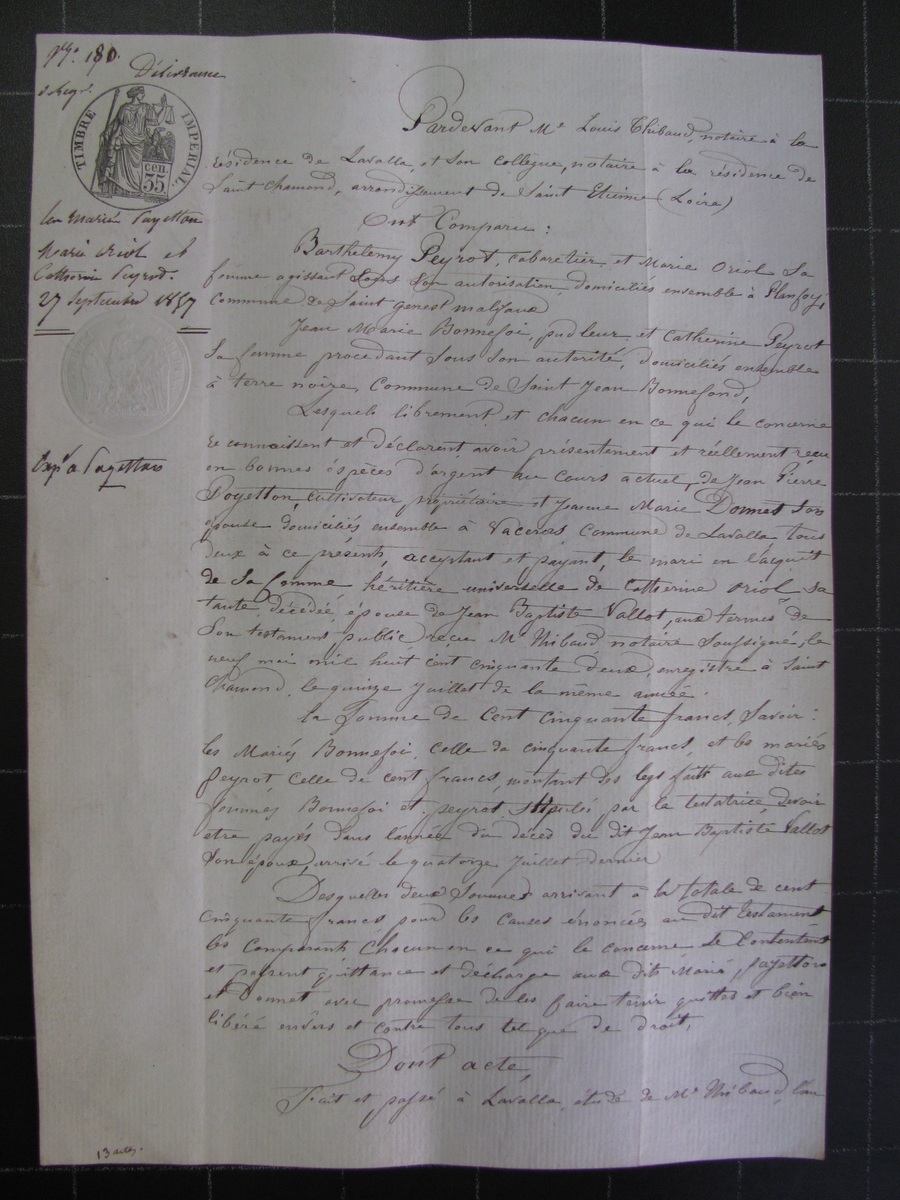 190.
Délivrance
TIMBRE IMPÉRIAL
35 cen
les mariés Payetton
Marie Oriol et
Catherine Peyrot.
27 Septembre 1857
Expn a Payetton
Pardevant Me Louis Thibaud, notaire à la
résidence de Lavalla, et son collègue, notaire à la résidence de
Saint Chamond, arrondissement de Saint Etienne (Loire)
Ont Comparu :
Barthelemy Peyrot, cabaretier et Marie Oriol sa
femme agissant sous son autorisation, domiciliés ensemble à Planfoy,
commune de Saint genest malifaux
Jean Marie Bonnefoi, pudleur et Catherine Peyrot
sa femme procédant sous son autorité, domiciliés ensemble
à terre noire, Commune de Saint Jean Bonnefond,
Lesquels librement et chacun en ce qui le concerne
reconnaissent et déclarent avoir présentement et réellement reçu
en bonnes éspèces d'argent au cours actuel, de Jean Pierre
Payetton, cultivateur propriétaire et Jeanne Marie Donnet son
épouse domiciliés ensemble à Vaceras, commune de Lavalla, tous
deux à ce présents, acceptant et payant, le mari en l'acquit
de sa femme héritière universelle de Catherine Oriol, sa
tante décédée, épouse de Jean Baptiste Vallot, aux termes de
son testament public reçu Me Thibaud, notaire soussigné, le
neuf mai mil huit cent cinquante deux, enregistré à Saint
Chamond, le quinze Juillet de la même année.
la somme de Cent cinquante francs, Savoir :
les Mariés Bonnefoi, celle de cinquante francs, et les mariés
Peyrot, celle de cent francs, montant des legs faits aux dites
femmes Bonnefoi et peyrot, stipulés par la testatrice devoir
etre payés dans l'année du décès du dit Jean Baptiste Vallot
son époux, arrivé le quatorze Juillet dernier
Desquelles deux sommes arrivant à la totale de cent
cinquante francs pour les causes énoncées au dit testament
les comparants chacun en ce qui le concerne se contentent
et passent quittance et décharge aux dits Mariés Payetton
et Donnet avec promesse de les faire tenir quittes et bien
libéré envers et contre tous tel que de droit,
Dont acte,
Fait et passé à Lavalla, étude de Me Thibaud, l'an
13